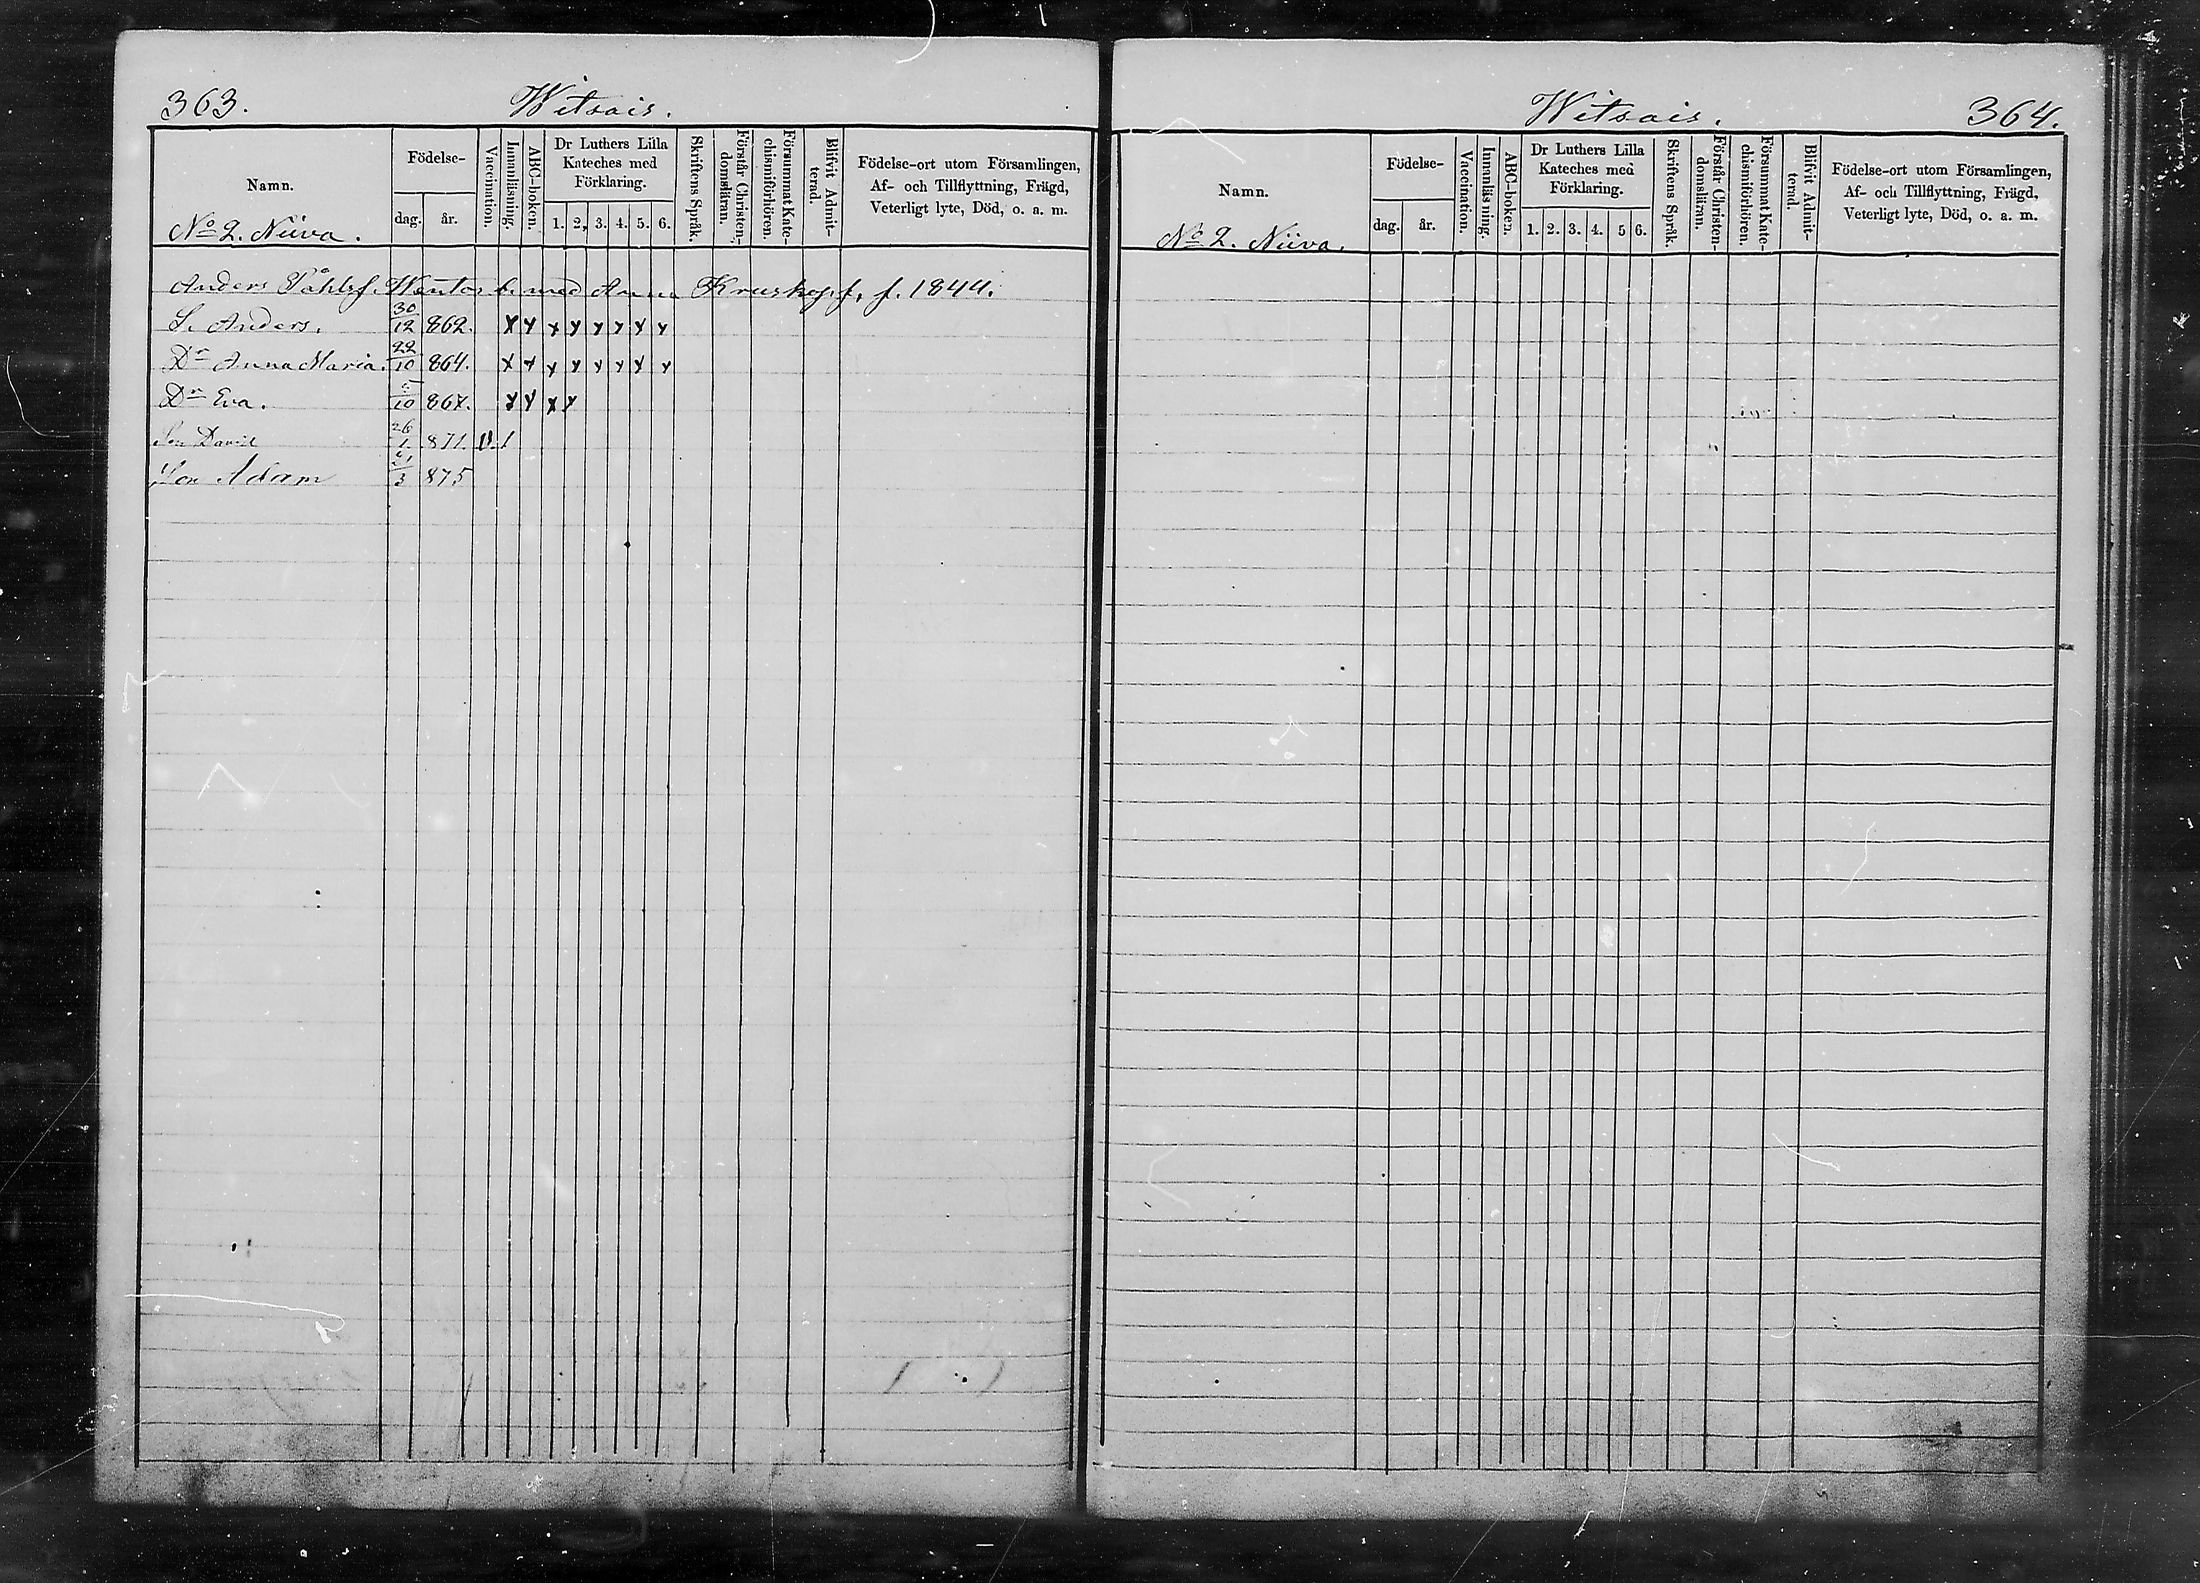 363. Witsais.
Namn.
Födelse-
dag. år.
Vaccination.
Innanläsning.
ABC-boken.
Dr Luthers Lilla
Kateches med
Förklaring.
1. 2, 3. 4. 5. 6.
Skriftens Språk.
Förstår Christen-
domsläran.
Försummat Kate-
chismiförhören.
Blifvit Admit-
terad.
Födelse-ort utom Församlingen,
Af- och Tillflyttning, Frägd,
Veterligt lyte, Död, o. a. m.
No 2. Niiva.
Anders Påhlsf. Wentos b. med Anna Kruskopf, f. 1844.
S. Anders. 30/12 862. x x x x x x x x
Dr Anna Maria. 22/10 864. x x x x x x x x
Dr Eva. 5/10 867. x x x x
Son David 26/1. 871.
Son Adam 21/3 875
Witsais. 364.
Namn.
Födelse-
dag. år.
Vaccination.
Innanläsning.
ABC-boken.
Dr Luthers Lilla
Kateches med
Förklaring.
1. 2. 3. 4. 5 6.
Skriftens Språk.
Förstår Christen-
domsläran.
Försummat Kate-
chismiförhören.
Blifvit Admit-
terad.
Födelse-ort utom Församlingen,
Af- och Tillflyttning, Frägd,
Veterligt lyte, Död, o. a. m.
No 2. Niiva.